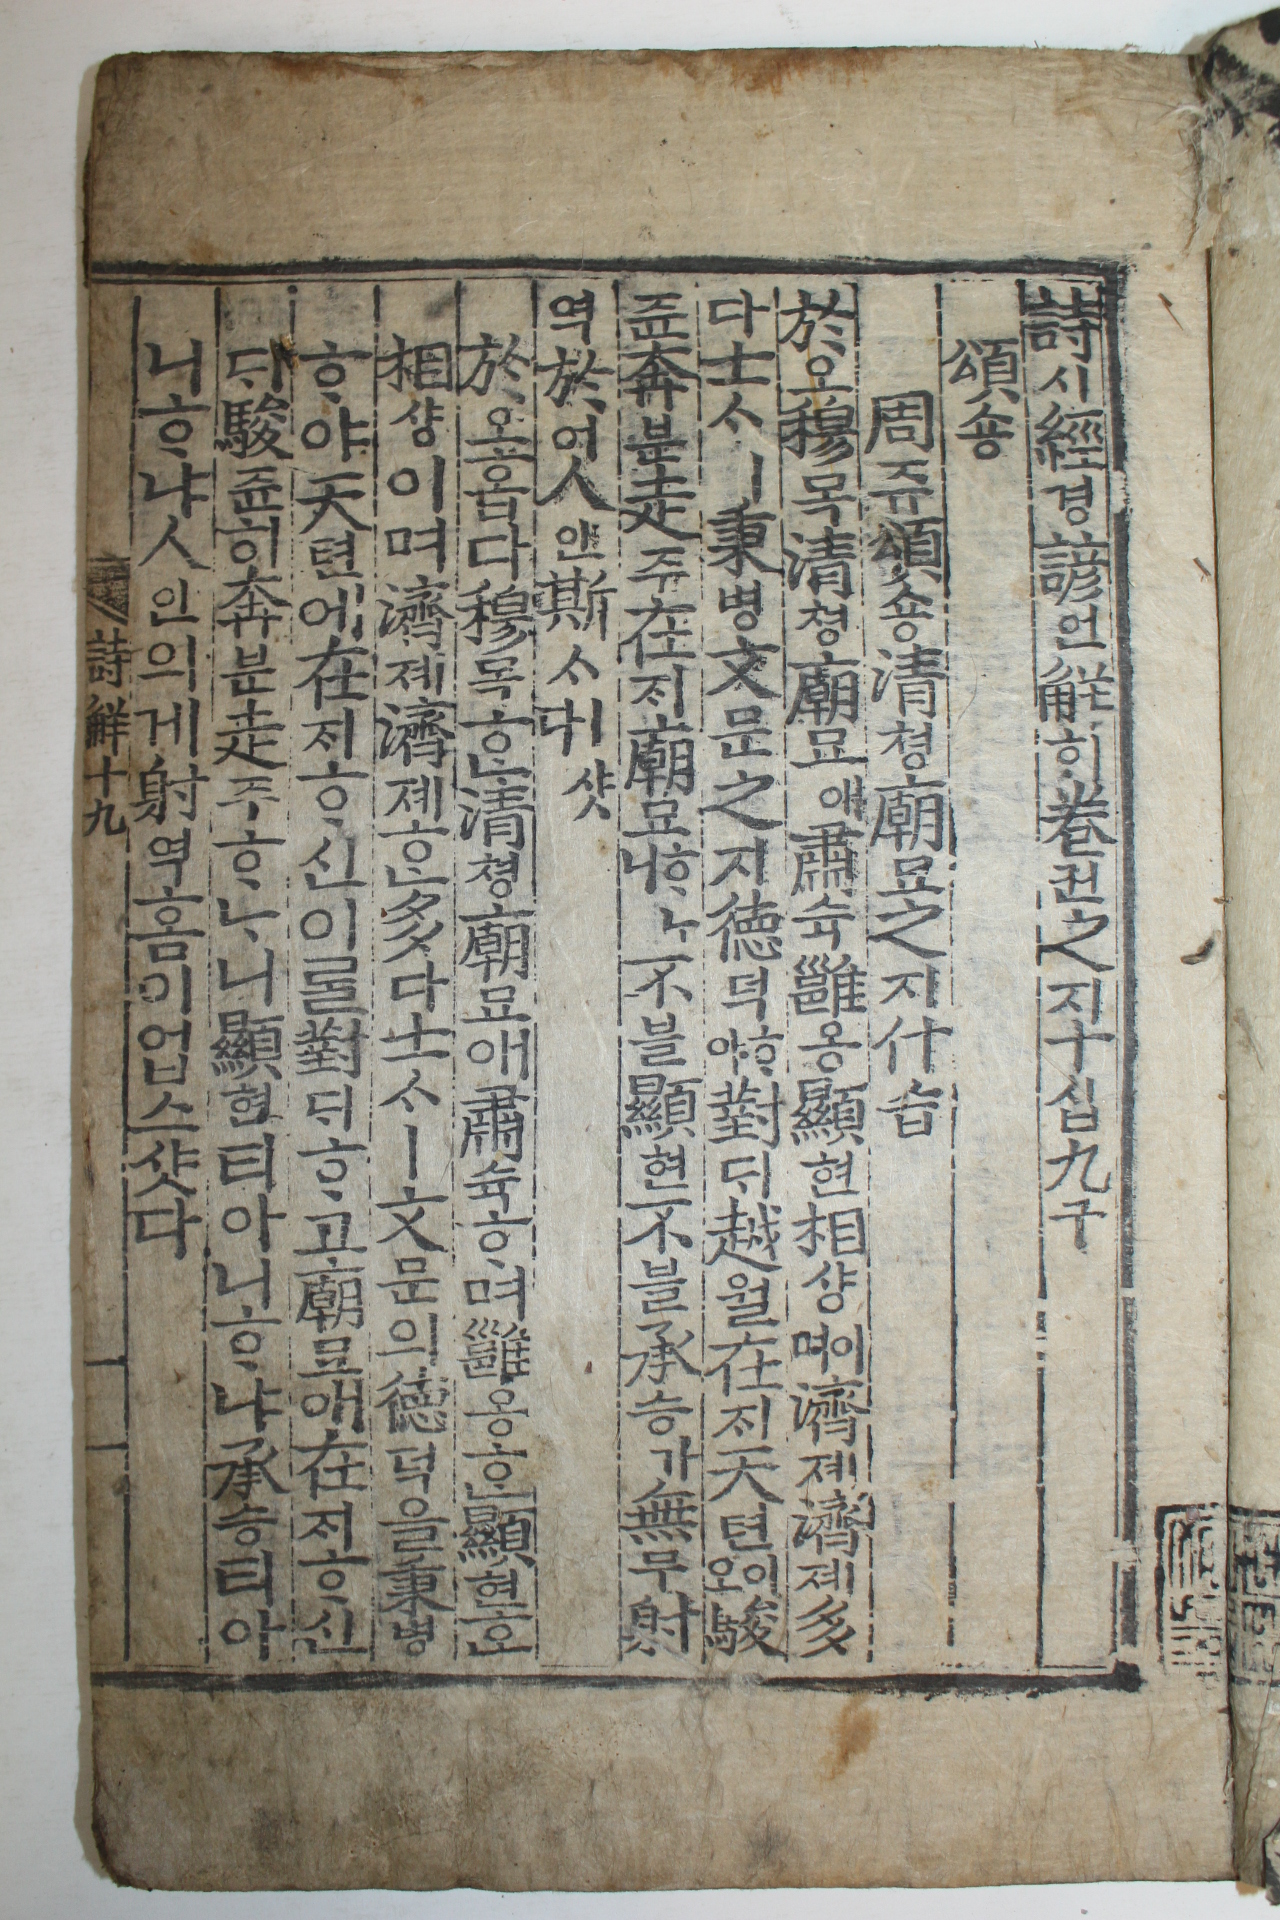 詩시經경諺언觧ᄒᆡ卷권之지十십九구
頌숑
周쥬頌숑淸쳥廟묘之지什습
於오穆목淸쳥廟묘애肅슉雝옹顯현相샹이며濟졔濟졔多
다士ᄉᆞㅣ秉병文문之지德덕ᄒᆞ야對ᄃᆡ越월在ᄌᆡ天텬이오駿
쥰奔분走주在ᄌᆡ廟묘ᄒᆞᄂᆞ니不블顯현不블承승가無무射
역於어人인斯ᄉᆞ샷다
於오홉다穆목ᄒᆞᆫ淸쳥廟묘애肅슉ᄒᆞ며雝옹ᄒᆞᆫ顯현ᄒᆞᆫ
相샹이며濟졔濟졔ᄒᆞᆫ多다士ᄉᆞㅣ文문의德덕을秉병
ᄒᆞ야天텬에在ᄌᆡᄒᆞ신이ᄅᆞᆯ對ᄃᆡᄒᆞ고廟묘애在ᄌᆡᄒᆞ신
ᄃᆡ駿쥰히奔분走주ᄒᆞᄂᆞ니顯현티아니ᄒᆞ냐承승티아
니ᄒᆞ냐人인의게射역홈이업스샷다
詩觧十九